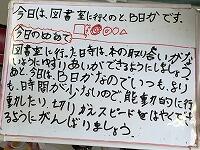 今日は、図書室に行くのと、B日かです。
今日のめあて
図書室に行った時は、本の取り合いがな
いようにゆずりあいができるようにしましょう
あと、今日は、B日かなのでいつも、より
も、日時間が少ないので、能動的に行
動したり、切りかえスピードをはやくす
るようにがんばりましょう。